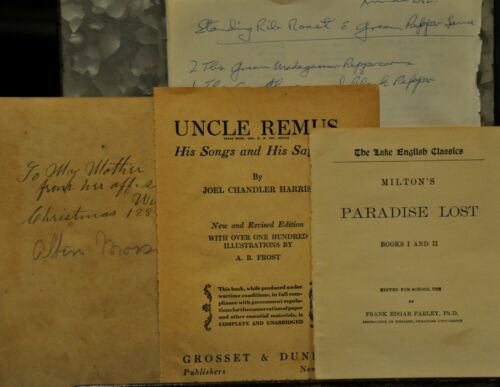 Standing Rib Roast & Green Pepper Sauce
2 Tbs Green Madagascar Peppercorns
Pepper
To My Mother
from her aff. s
Christmas 188
UNCLE REMUS
His Songs and His Sa
By
JOEL CHANDLER HARRIS
New and Revised Edition
WITH OVER ONE HUNDRED
ILLUSTRATIONS BY
A. B. FROST
This book, while produced under
wartime conditions, in full com-
pliance with government regula-
tions for the conservation of paper
and other essential materials, is
COMPLETE AND UNABRIDGED
GROSSET & DUN
Publishers Ne
The Lake English Classics
MILTON'S
PARADISE LOST
BOOKS I AND II
EDITED FOR SCHOOL USE
BY
FRANK EDGAR FARLEY, Ph.D.
PROFESSOR OF ENGLISH, SYRACUSE UNIVERSITY